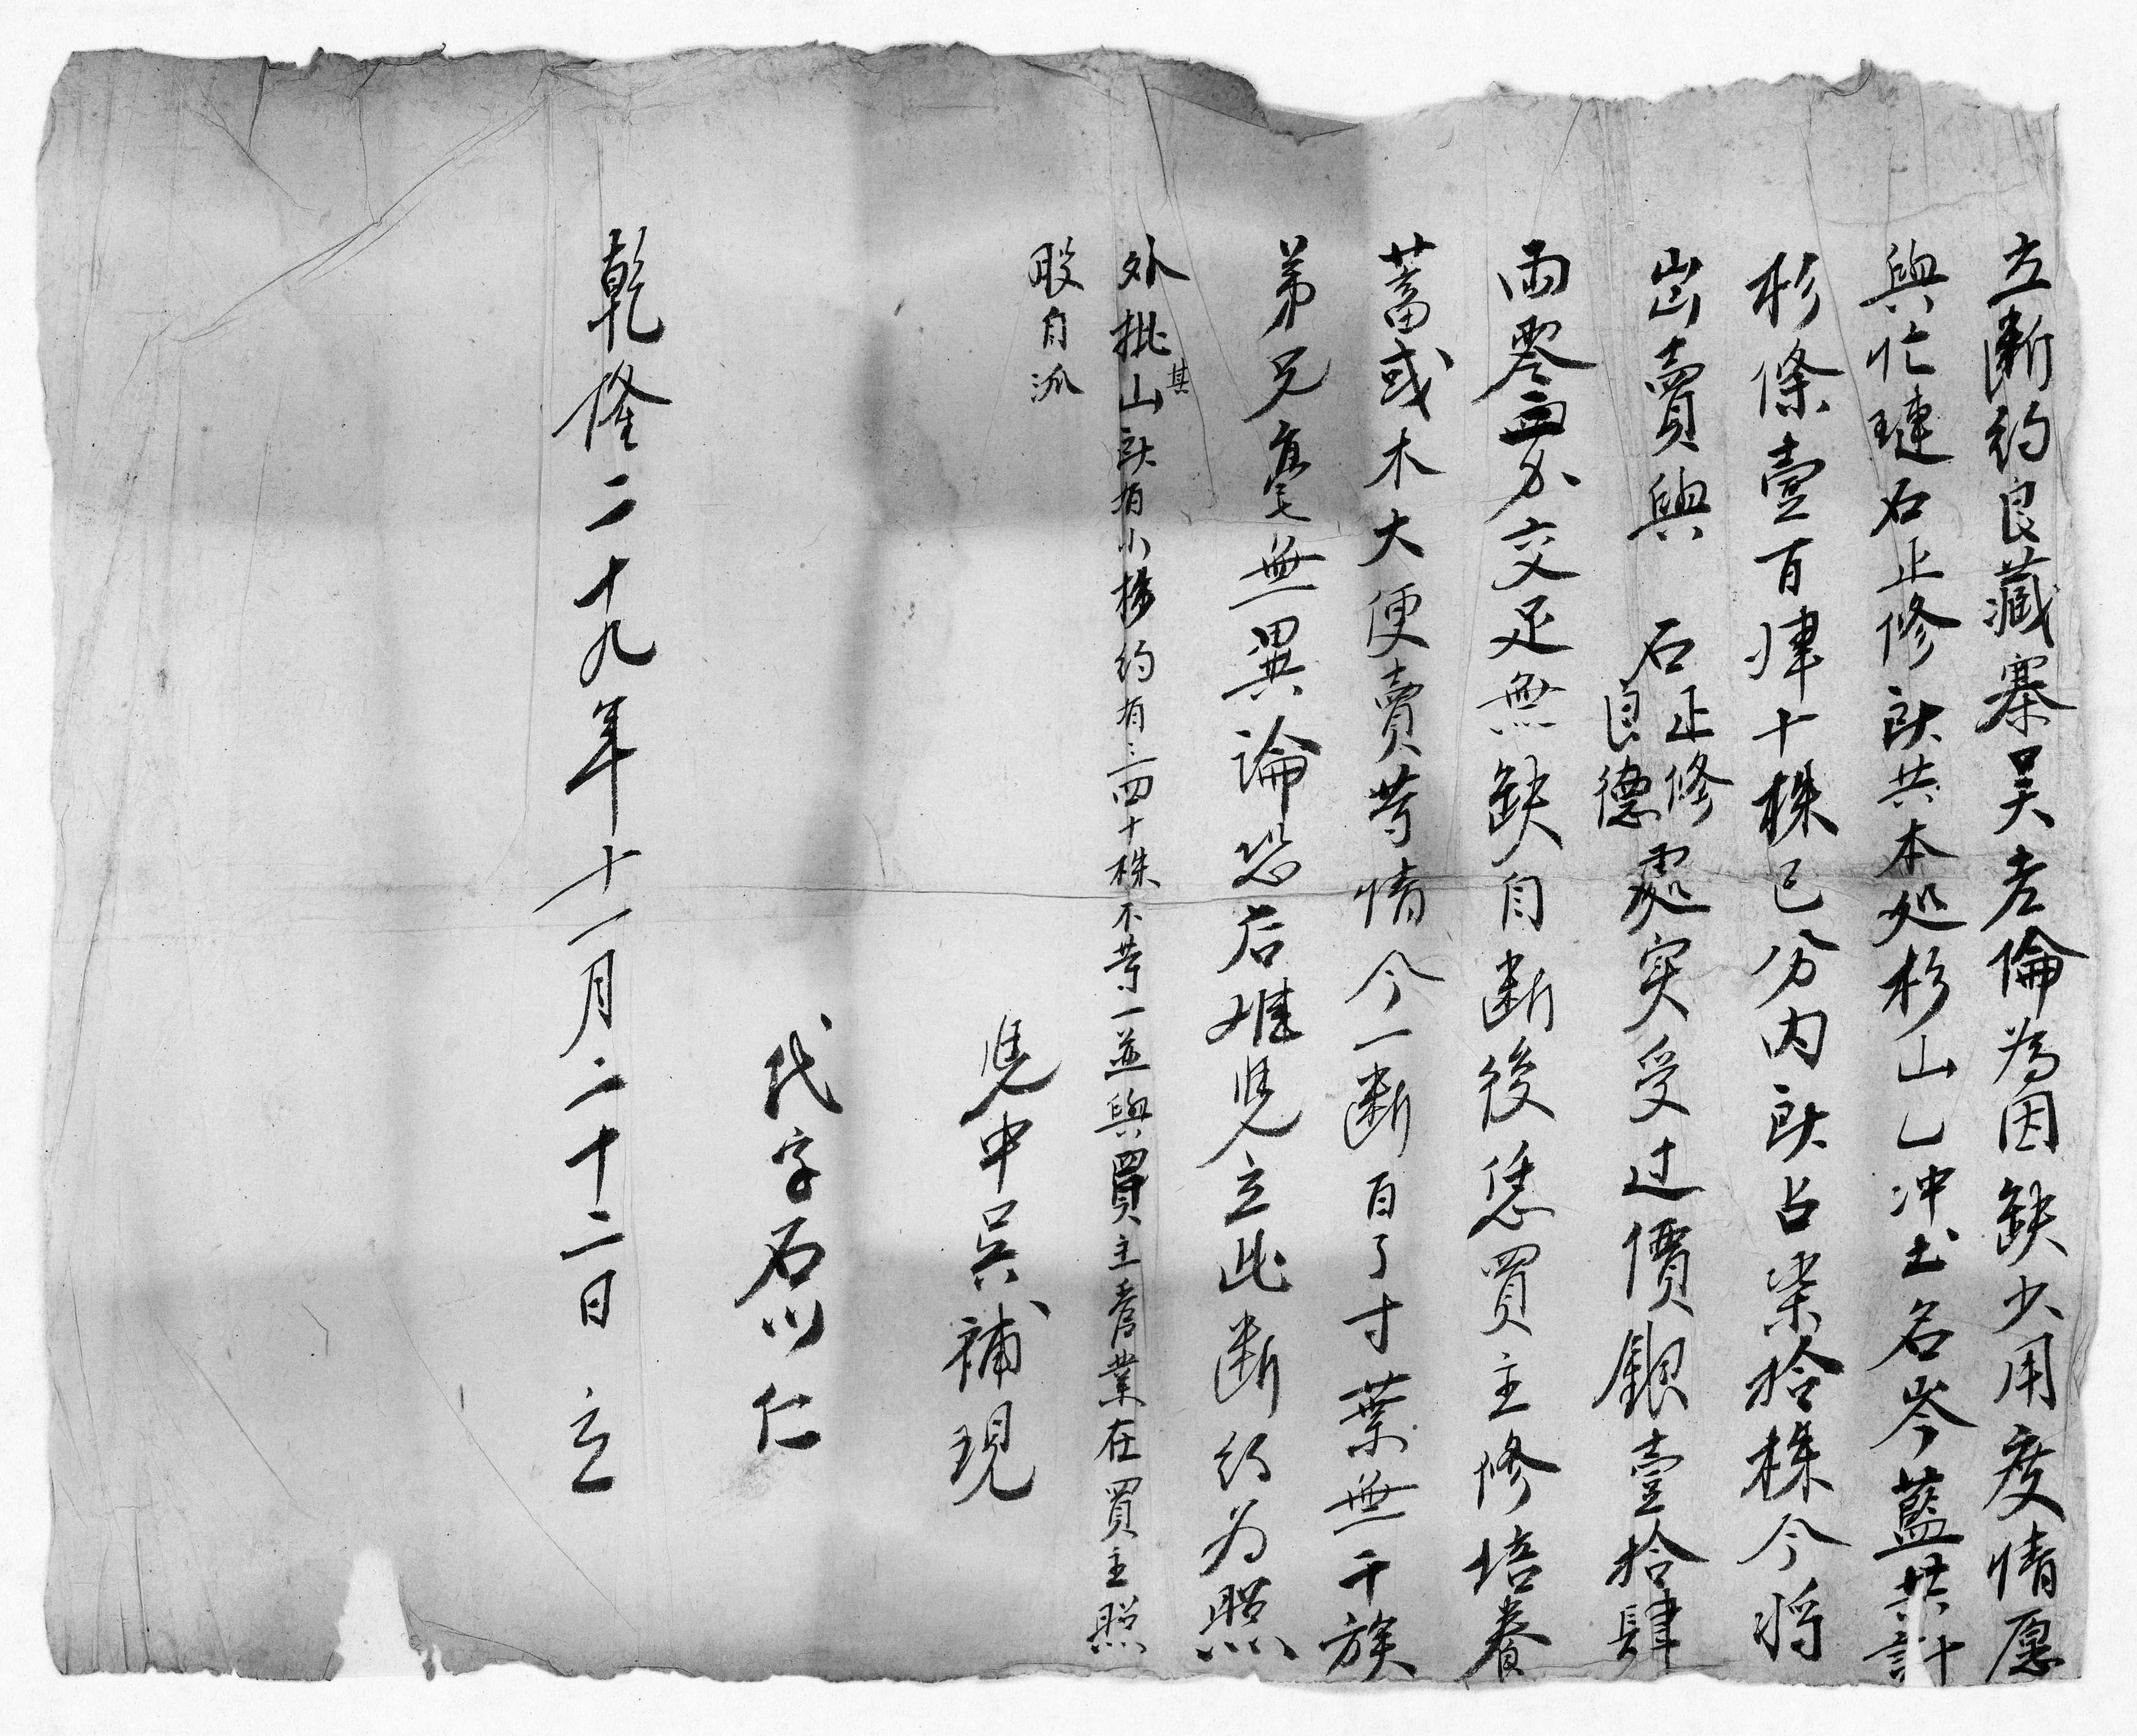 立断約良藏寨吴老倫為因缺少用度情愿
與忙璉石止修 共本処杉山乙冲土名岑藍共計
杉條壹百肆十株已分内 占柒拾株今将
出賣與 石止修 良德 處実受过價銀壹拾肆
両零 交足無缺自断後恁買主修培養
蓄或木大便賣等情今一断百了寸葉無干族
弟兄 無異論恐后难凭立此断約为照
外批其山 有小杉約有三四十株不等一並與買主 業在買主照
股自派
凭中吴補現
代字石川仁
乾隆二十九年十一月二十二日 立